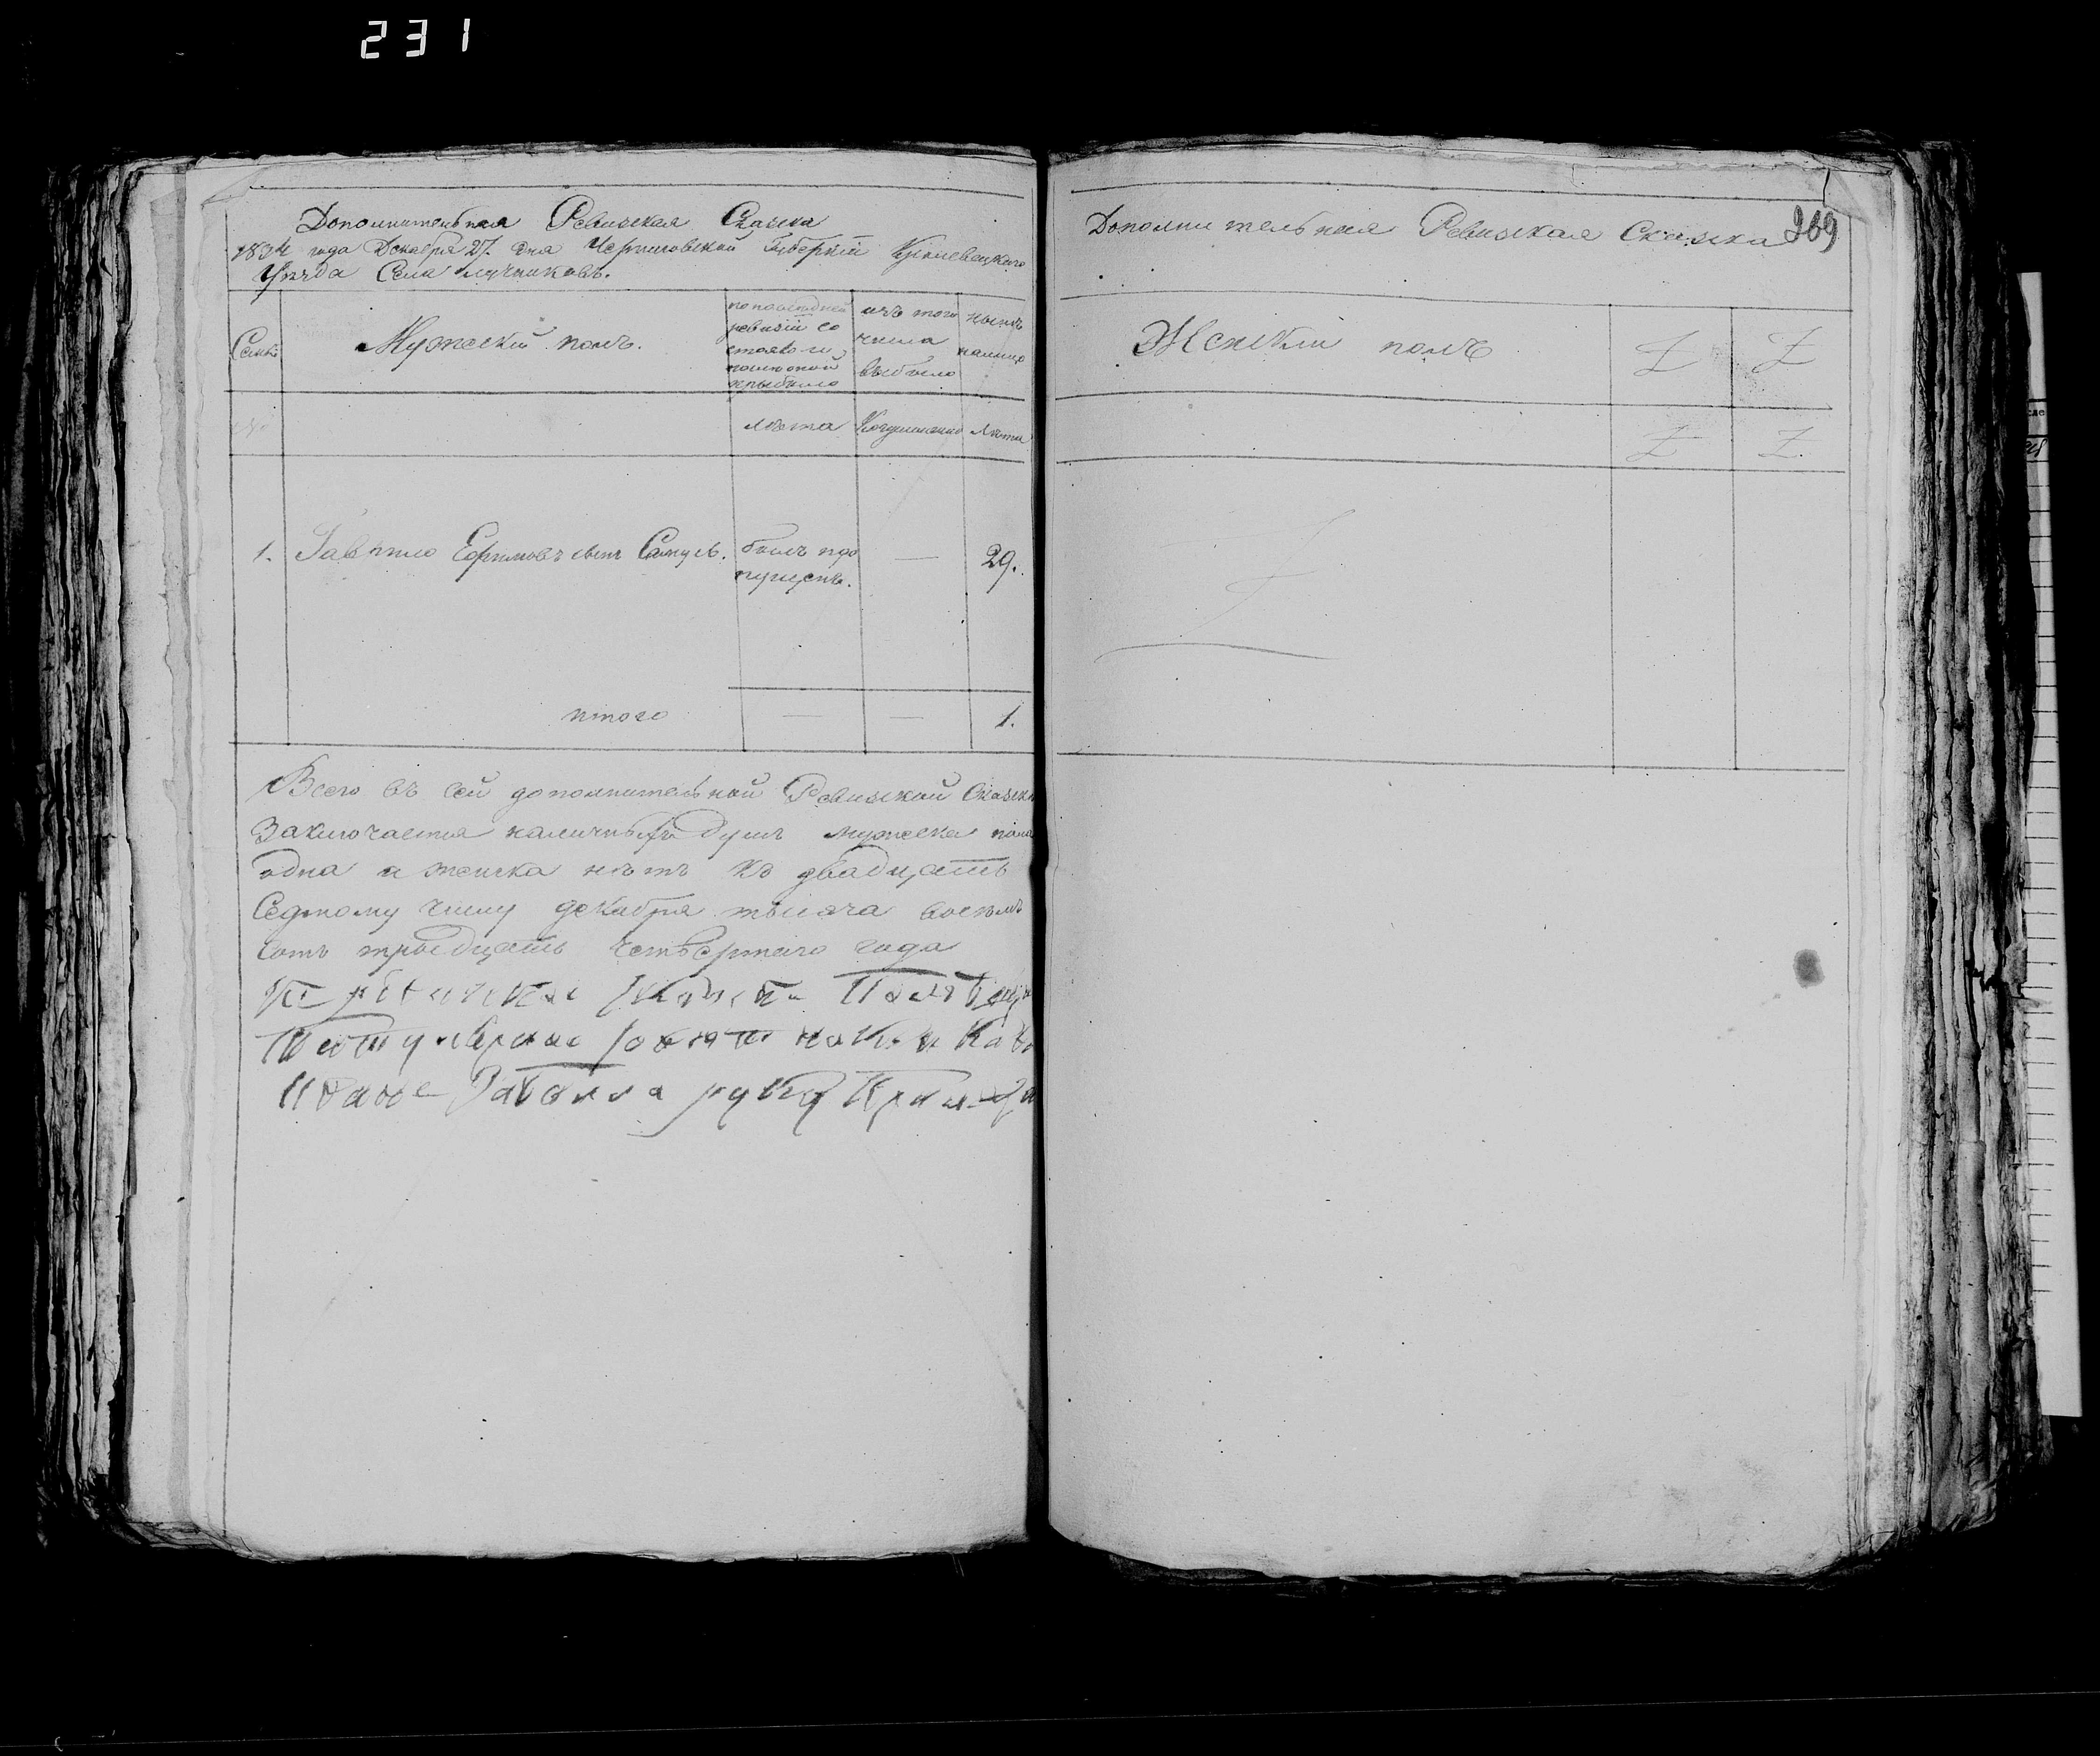 231
Дополнительная Ревизская Сказка
1834 года Декабря 27. дня Черниговской Губернiи
Уѣзда Села Лучниковъ.
Семьи
Мужескiй полъ.
по последней ревизiи состояло и после оной прибыло
изъ того числа выбыло
нынѣ налицо
лѣта
Когда именно
Лѣта
1. Гаврило Ефимовъ сынъ Самусь.
былъ про
пущенъ.
—
29.
итого
—
—
1.
Всего въ сей дополнительной Ревизской Сказки
Заключается наличныхъ душъ мужеска пола
одна а женска нѣтъ Къ двадцать
Седмому числу декабря тысяча восемь
сотъ тридцать четвертаго года
рука
Дополнительная Ревизская Сказка
269
Женскiй полъ